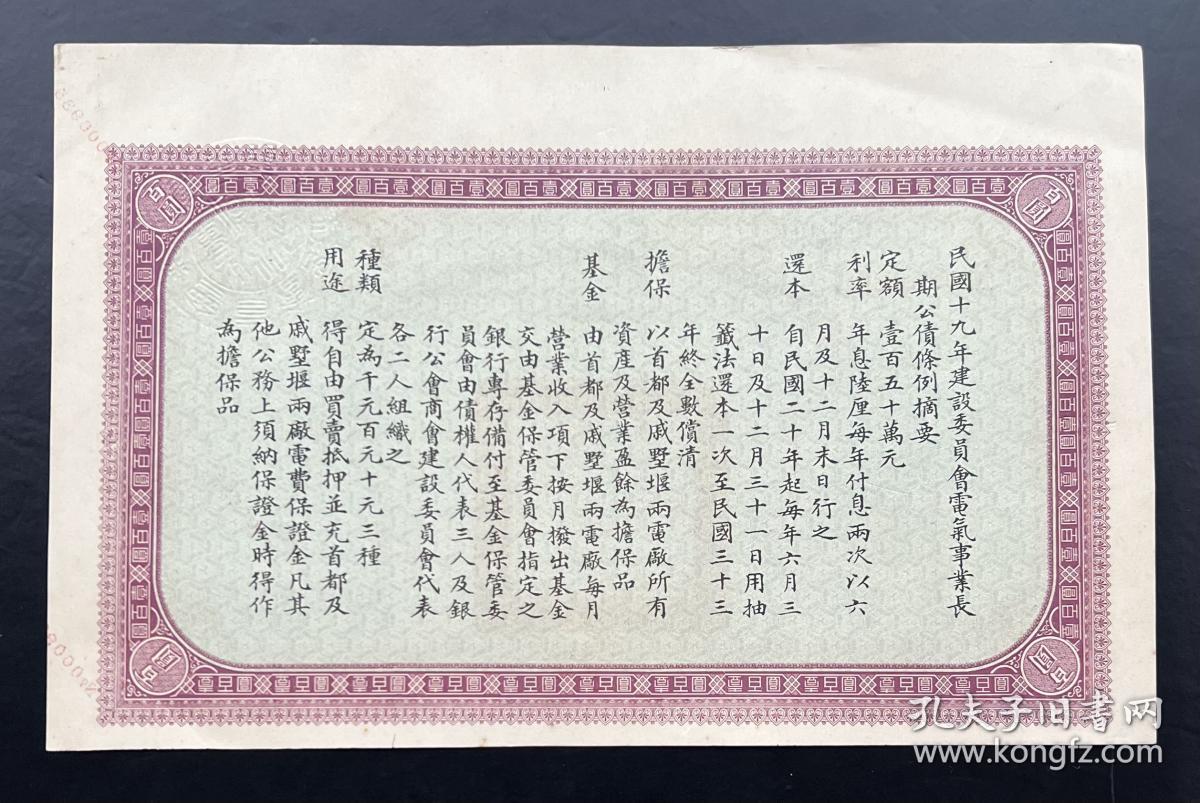 民國十九年建設委員會電氣事業長
期公債條例摘要
定額 壹百五十萬元
利率 年息陸厘每年付息兩次以六
月及十二月末日行之
還本 自民國二十年起每年六月三
十日及十二月三十一日用抽
籤法還本一次至民國三十三
年終全數償清
擔保 以首都及戚墅堰兩電廠所有
資產及營業盈餘為擔保品
基金 由首都及戚墅堰兩電廠每月
營業收入項下按月撥出基金
交由基金保管委員會指定之
銀行專存備付至基金保管委
員會由債權人代表三人及銀
行公會商會建設委員會代表
各二人組織之
種類 定為千元百元十元三種
用途 得自由買賣抵押並充首都及
戚墅堰兩廠電費保證金凡其
他公務上須納保證金時得作
為擔保品
百圓
百圓
百圓
百圓
壹百圓
孔夫子旧书网
www.kongfz.com